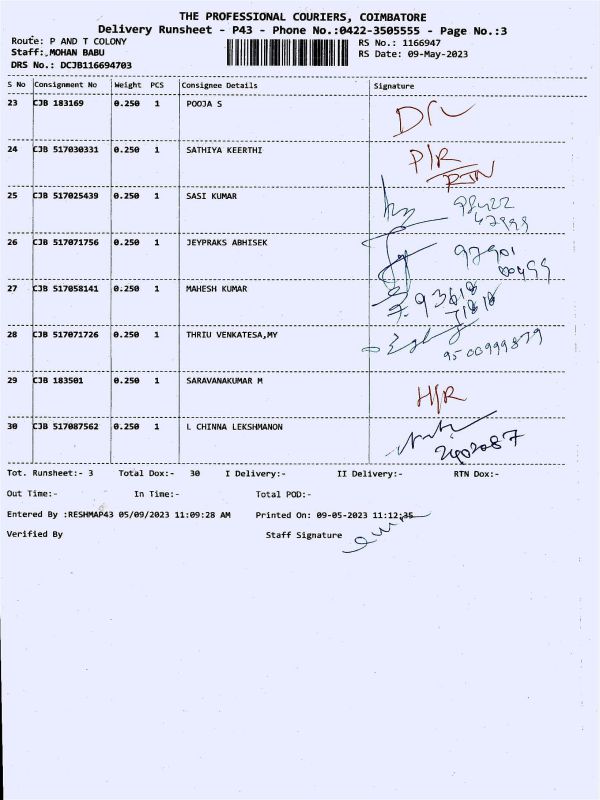 THE PROFESSIONAL COURIERS, COIMBATORE
Delivery Runsheet - P43 - Phone No.:0422-3505555 - Page No.:3
Route: P AND T COLONY
RS No.: 1166947
Staff: MOHAN BABU
RS Date: 09-May-2023
DRS No.: DCJB116694703
S No Consignment No Weight PCS Consignee Details Signature
23 CJB 183169 0.250 1 POOJA S
24 CJB 517030331 0.250 1 SATHIYA KEERTHI P/R
RTN
25 CJB 517025439 0.250 1 SASI KUMAR
26 CJB 517071756 0.250 1 JEYPRAKS ABHISEK 97901
00499
27 CJB 517058141 0.250 1 MAHESH KUMAR
28 CJB 517071726 0.250 1 THRIU VENKATESA,MY
9500999879
29 CJB 183501 0.250 1 SARAVANAKUMAR M H/R
30 CJB 517087562 0.250 1 L CHINNA LEKSHMANON
Tot. Runsheet:- 3 Total Dox:- 30 I Delivery:- II Delivery:- RTN Dox:-
Out Time:- In Time:- Total POD:-
Entered By :RESHMAP43 05/09/2023 11:09:28 AM Printed On: 09-05-2023 11:12:35
Verified By Staff Signature